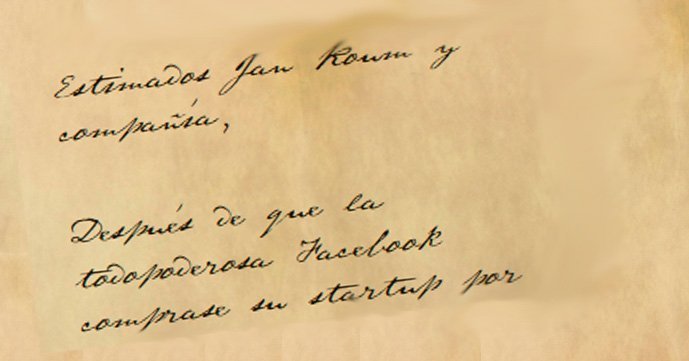 Estimados Jan Koum y
compañía,
Después de que la
todopoderosa Facebook
comprase su startup por